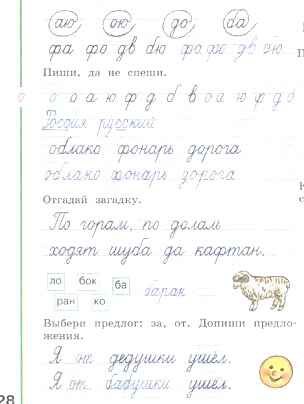 аю ою до ба
фа фо дв бю фа фо дв ою
Пиши, да не спеши.
о о а ю ф д б в о а ю ф д б
Россия русский
облако фонарь дорога
облако фонарь дорога
Отгадай загадку.
По горам, по долам
ходят шуба да кафтан.
ло бок ба баран
ран ко
Выбери предлог: за, от. Допиши предло-
жения.
Я от дедушки ушёл.
Я от бабушки ушёл.
28